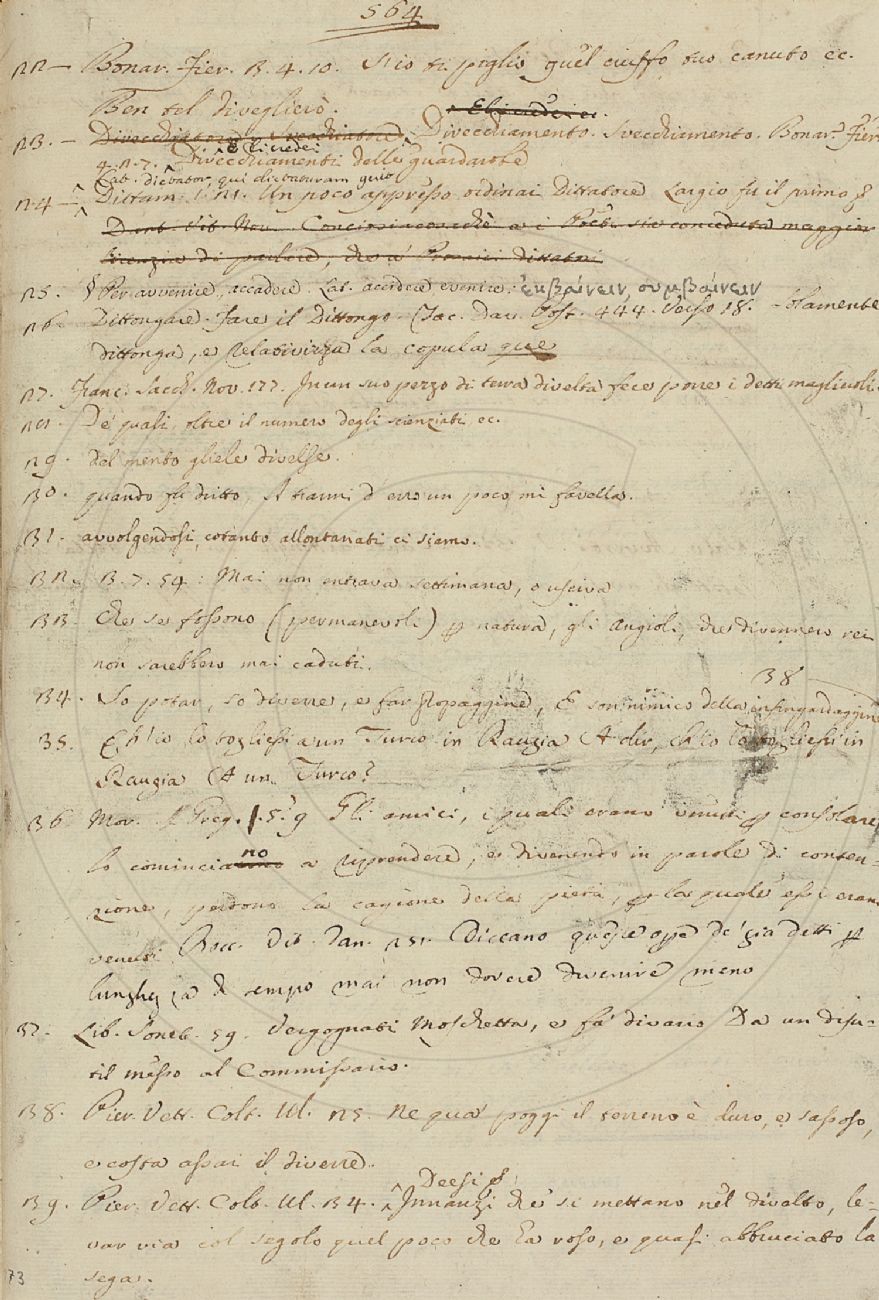 564
22 — Bonar. Fier. 3. 4. 10. S' io ti piglio quel ciuffo tuo canuto ec.
Ben tel diveglierò.
23. — Divecchiamento. Svecchiamento. Bonar. Fier.
4. 2. 7. E lì vedei Divecchiamenti delle guardarobe
Lat. dictator, qui dictaturam gerit
24 — Dittam. 1. 21. Un poco appresso ordinai Dittatore Largio fu il primo
Dant. Vit. Nov. Conciossiacosachè a i Poeti sia conceduta maggior
licenzia di parlare, che a' Prosaici dittatori
25. § Per avvenire, accadere. Lat. accidere evenire. ἐκβαίνειν, συμβαίνειν
26 Dittongare. Fare il Dittongo. (Tac. Dav. Post. 444. Verso 18. Solamente
dittonga, e relativizza la copula que
27. Franc. Sacch. Nov. 177. In un suo pezzo di terra divelta fece porre i detti magliuoli
28. De' quali, oltre il numero degli scienziati ec.
29. del mento gliele divelse.
30. quando fu dritto, A trarmi d' erro un poco mi favella.
31. avvolgendosi, cotanto allontanati ci siamo.
32. 3. 7. 54: Mai non entrava settimana, o usciva
33. Che se fossono (permanevoli) p natura, gli Angioli, che divennero rei
non sarebbero mai caduti.
38
34. So potar, so diverre, e far propaggine, E son nimico della infingardaggine
35. E ch' io lo togliessi a un Turco in Raugia A dir, ch' lo togliessi in
Raugia A un Turco?
36 Mor. S. Greg. 1. 5. 9 Gli amici, i quali erano venuti p consolare
lo cominciano a riprendere, e divenendo in parole di conten=
zione, perdono la cagione della pietà, p la quale essi erano
venuti. Bocc. Vit. Dan. 251. Diceano queste ope de' già detti p
lunghezza di tempo mai non dovere divenire meno
37. Lib. Sonet. 59. Vergognati Moschetta, e fa' divario Da un disu=
til messo al Commissario.
38. Pier. Vett. Colt. Ul. 25. Ne qua' poggi il terreno è duro, e sassoso,
e costa assai il diverre.
39. Pier. Vett. Colt. Ul. 34. Deesi p Innanzi che si mettano nel divelto, le=
var via col segolo quel poco che ha roso, e quasi abbruciatto la
sega.
73